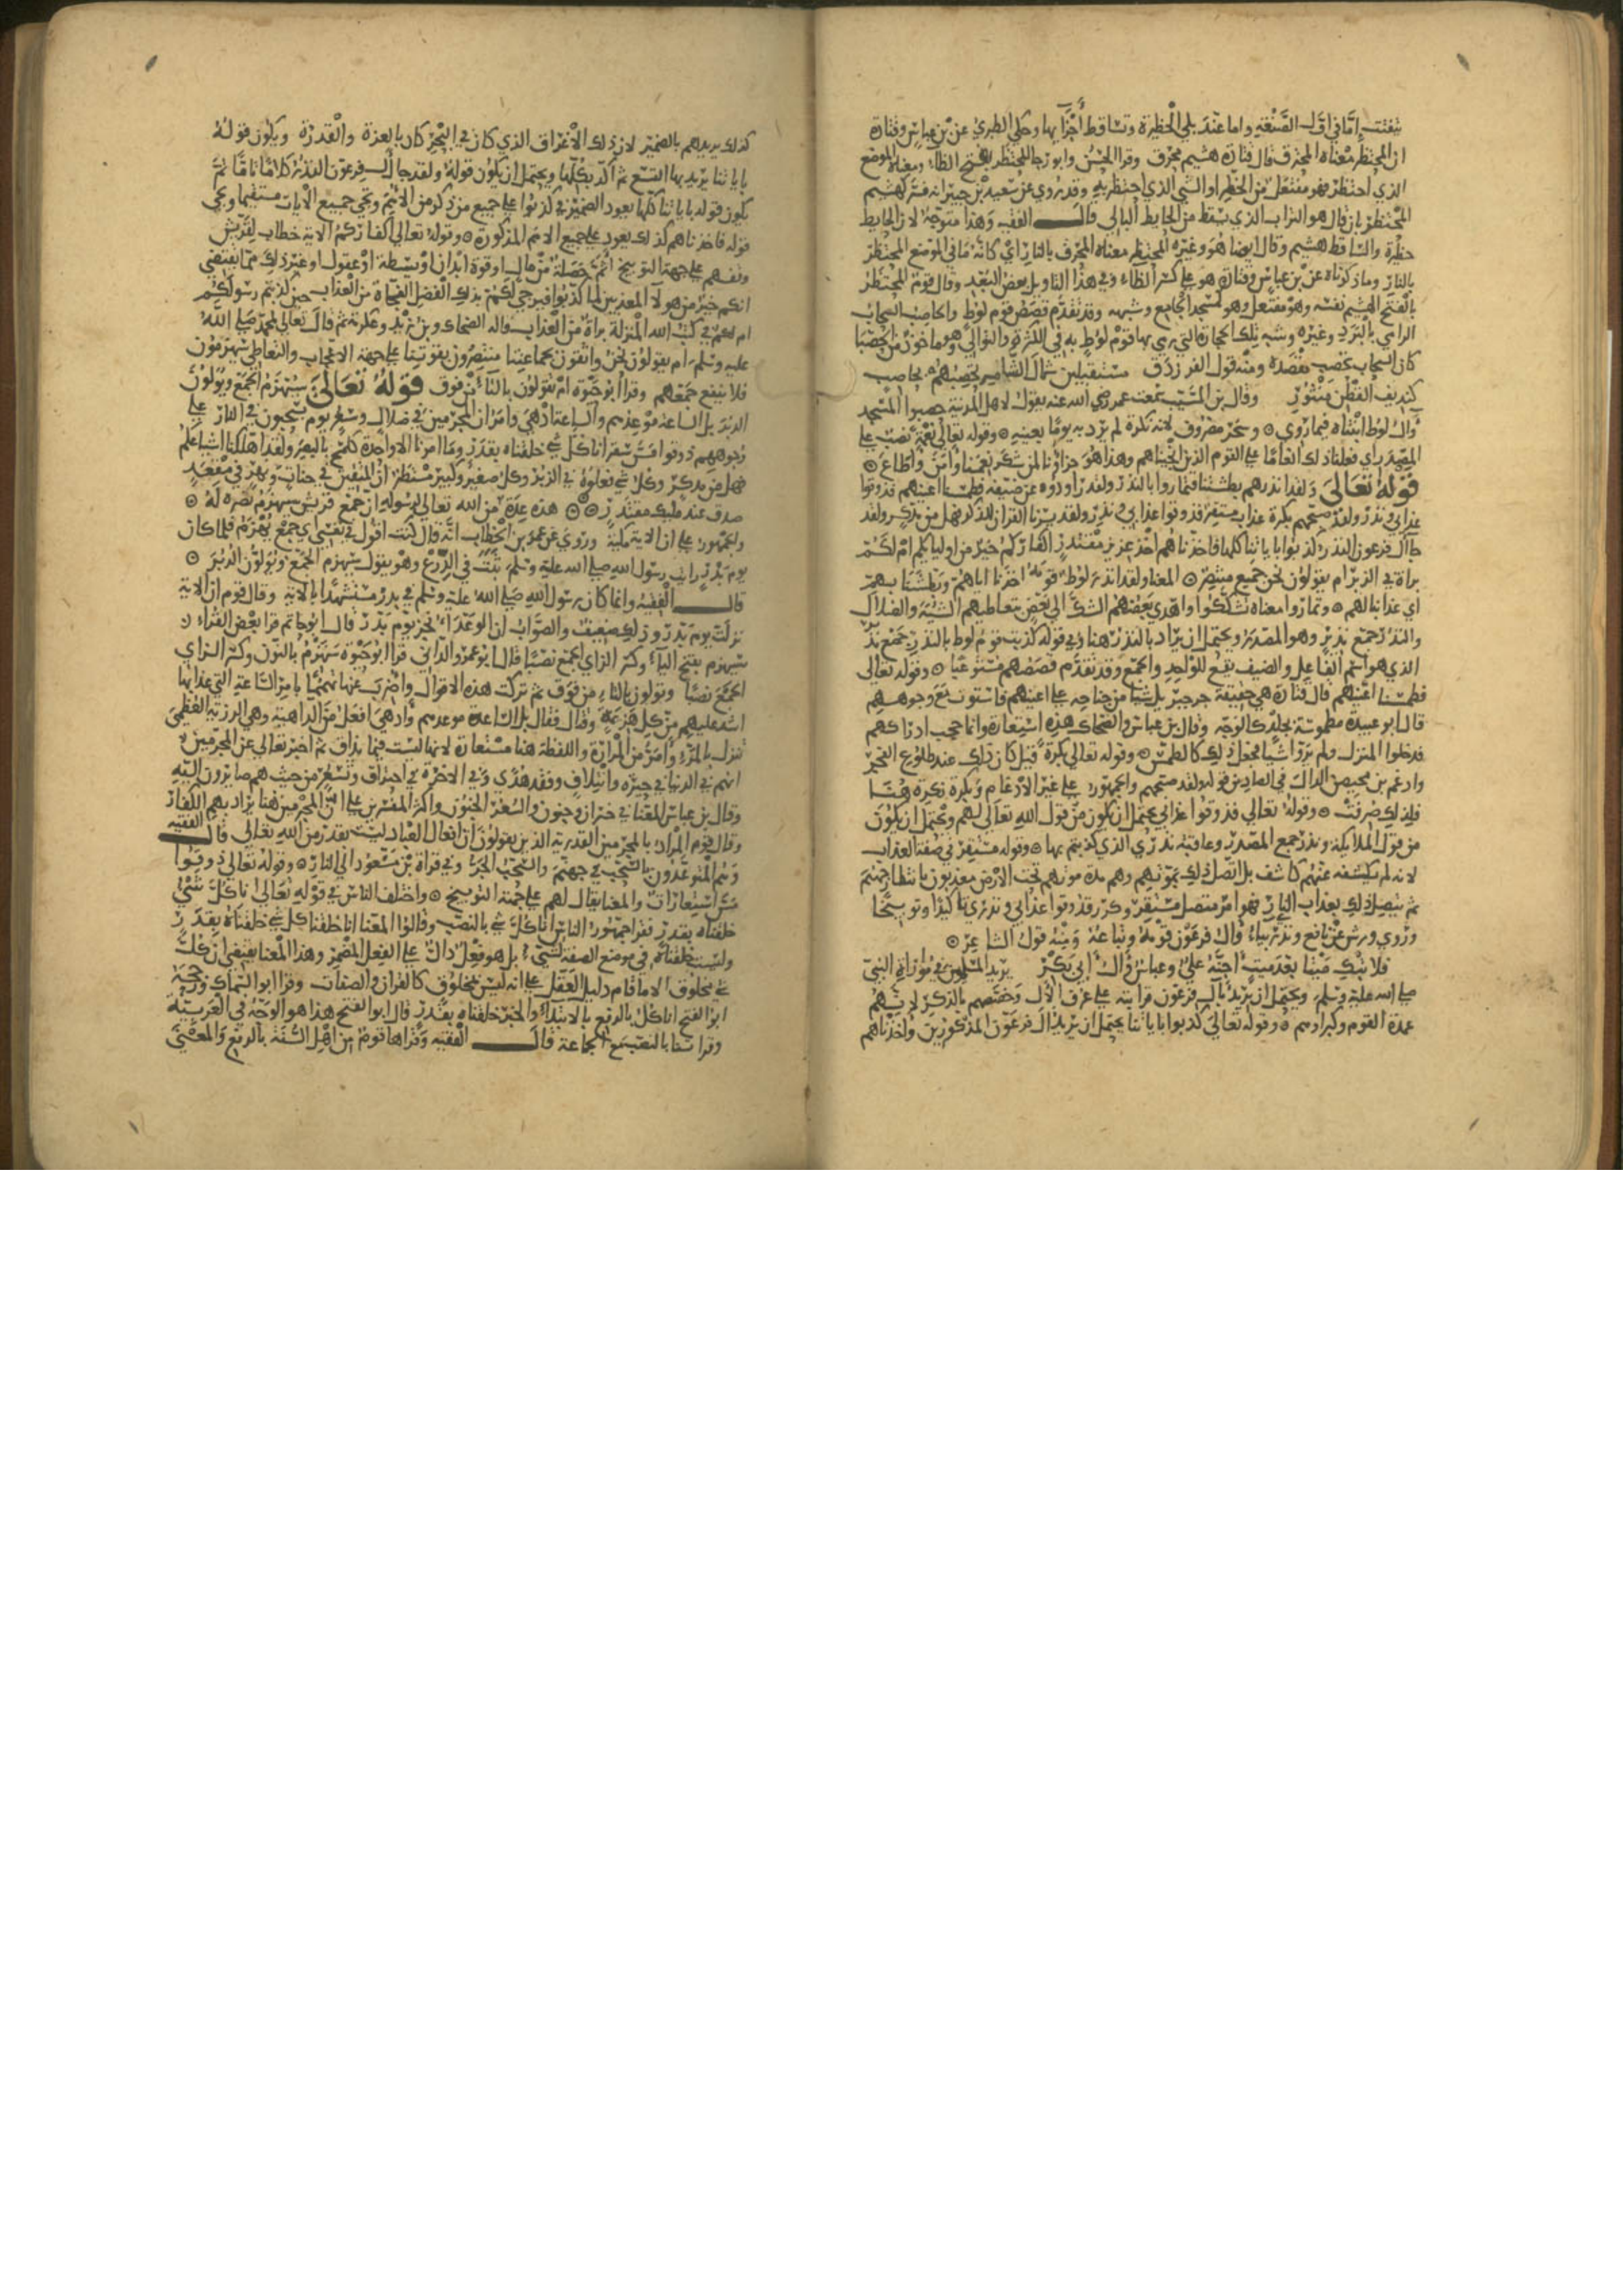 يتفتت اما في اول الصنعة واما عند بلي الحظيرة وتساقط اجزايها وحكي الطبري عن بن عباس وقتادة
ان المحتظر معناه المحترق قال قتادة هشيم محرق وقرا الحسن وابو رجا المحتظر بفتح الظاء ومعناه الموضع
الذي احتظر فهو مفتعل من الحظر او الشي الذي احتظر به وقد روي عن سعيد بن جبير انه فسر كهشيم
المحتظر بان قال هو التراب الذي يسقط من الحايط البالي قال الفقيه وهذا متوجه لان الحايط
حظيرة والساقط هشيم وقال ايضا هو وغيره المحتظر معناه المحرق بالنار اي كانه ما في الموضع المحتظر
بالنار وما ذكرناه عن بن عباس وقتادة هو علي كسر الظاء وفي هذا التاويل بعض البعد وقال قوم المحتظر
بالفتح الهشيم نفسه وهو مفتعل وهو كمسجد الجامع وشبهه وقد تقدم قصص قوم لوط والحاصب السحاب
الرامي بالبرد وغيره وشبه تلك الحجارة التي رمي بها قوم لوط به في الكثرة والتوالي وهو ماخوذ من الحصبا
كان السحاب يحصب مقصده ومنه قول الفرزدق مستقبلين شمال الشام تضربهم بحاصب
كنديف القطن منثور وقال بن المسيب سمعت عمر رضي الله عنه يقول لاهل المدينة حصبوا المسجد
وال لوط ابنتاه فيما روي وسحر مصروف لانه نكرة لم يرد به يوما بعينه وقوله تعالي نعمة نصب علي
المصدر اي فعلنا ذلك انعاما علي القوم الذين انجيناهم وهذا هو جزاؤنا لمن شكر نعمنا وامن واطاع
قوله تعالى ولقد انذرهم بطشتنا فتماروا بالنذر ولقد راودوه عن ضيفه فطمسنا اعينهم فذوقوا
عذابي ونذر ولقد صبحهم بكرة عذاب مستقر فذوقوا عذابي ونذر ولقد يسرنا القران للذكر فهل من مدكر ولقد
جا ال فرعون النذر كذبوا باياتنا كلها فاخذناهم اخذ عزيز مقتدر اكفاركم خير من اوليكم ام لكم
براة في الزبر ام يقولون نحن جميع منتصر المعنا ولقد انذر لوط قومه اخذنا اياهم وبطشتنا بهم
اي عذابنا لهم وتماروا معناه تشككوا واهدي بعضهم الشك الي بعض بتعاطيهم الشبه والضلال
والنذر جمع نذير وهو المصدر ويحتمل ان يراد بالنذر هنا وفي قوله كذبت قوم لوط بالنذر جمع نذير
الذي هو اسم الفاعل والضيف يقع للواحد والجمع وقد تقدم قصصهم مستوعبا وقوله تعالى
فطمسنا اعينهم قال قتادة هي حقيقة جر جبريل شيا من جناحه علي اعينهم فاستوت مع وجوههم
قال ابو عبيدة مطموسة بجلد كالوجه وقال بن عباس والضحاك هذه استعارة وانما حجب ادراكهم
فدخلوا المنزل ولم يروا شيا فجعل ذلك كالطمس وقوله تعالي بكرة قيل كان ذلك عند طلوع الفجر
وادغم بن محيصن الدال في الصاد من قوله ولقد صبحهم والجمهور علي غير الادغام وبكرة نكرة هنا
فلذلك صرفت وقوله تعالي فذوقوا عذابي يحتمل ان يكون من قول الله تعالى لهم ويحتمل ان يكون
من قول الملايكة ونذر جمع المصدر وعاقبة نذري الذي كذبتم بها وقوله مستقر في صفة العذاب
لانه لم يكشفه عنهم كاشف بل اتصل ذلك بموتهم وهم مدة موتهم تحت الارض معذبون بانتظار جهنم
ثم يتصل ذلك بعذاب النار فهو امر متصل مستقر وكرر فذوقوا عذابي ونذري تاكيدا وتوبيخا
وروي ورش عن نافع ونذري بياء وال فرعون قومه وتباعه ومنه قول الشاعر
فلا تبك ميتا بعد ميت اجنه علي وعباس وال ابي بكر يريد المسلمين في مواراتهم النبي
صلي الله عليه وسلم ويحتمل ان يريد بال فرعون قرابته علي عرف الال وخصصهم بالذكر لانهم
عمدة القوم وكبراوهم وقوله تعالى كذبوا باياتنا يحتمل ان يريد ال فرعون المذكورين واخذناهم
كذلك يريدهم بالضمير لان ذلك الاغراق الذي كان في البحر كان بالعزة والقدرة ويكون قوله
باياتنا يريد بها التسع ثم اكد بكلها ويحتمل ان يكون قوله ولقد جا ال فرعون النذر كلاما تاما ثم
يكون قوله باياتنا كلها يعود الضمير في كذبوا علي جميع من ذكر من الامم وتجي جميع الايات مستقيما وتجي
قوله فاخذناهم كذلك يعود علي جميع الامم المذكورة وقوله تعالي اكفاركم الاية خطاب لقريش
وقفهم علي جهة التوبيخ اثم خصلة من مال او قوة ابدان او بسطة او عقول او غير ذلك مما يقتضي
انكم خير من هولا المعذبين لما كذبوا فيرجي لكم بذلك الفضل النجاة من العذاب حين كذبتم رسولكم
ام لكم في كتب الله المنزلة براة من العذاب قاله الضحاك وبن زيد وعكرمة ثم قال تعالي لمحمد صلي الله
عليه وسلم ام يقولون نحن واثقون بجماعتنا منتصرون بقوتنا علي جهة الاعجاب والتعاطي سيهزمون
فلا ينفع جمعهم وقرا ابو حيوة ام تقولون بالتاء من فوق قوله تعالى سيهزم الجمع ويولون
الدبر بل الساعة موعدهم والساعة ادهى وامر ان المجرمين في ضلال وسعر يوم يسحبون في النار علي
وجوههم ذوقوا مس سقر انا كل شي خلقناه بقدر وما امرنا الا واحدة كلمح بالبصر ولقد اهلكنا اشياعكم
فهل من مدكر وكل شي فعلوه في الزبر وكل صغير وكبير مستطر ان المتقين في جنات ونهر في مقعد
صدق عند مليك مقتدر هذه عدة من الله تعالي لرسوله ان جمع قريش سيهزم نصره له
والجمهور علي ان الاية مكية وروي عن عمر بن الخطاب انه قال كنت اقول في نفسي اي جمع يهزم فلما كان
يوم بدر رايت رسول الله صلي الله عليه وسلم يثب في الدرع وهو يقول سيهزم الجمع ويولون الدبر
قال الفقيه وانما كان رسول الله صلي الله عليه وسلم في بدر مستشهدا بالاية وقال قوم ان الاية
نزلت يوم بدر وذلك ضعيف والصواب ان الوعد انجز يوم بدر قال ابو حاتم قرا بعض القراء
سيهزم بفتح الياء وكسر الزاي الجمع نصبا قال ابو عمرو الداني قرا ابو حيوة سنهزم بالنون وكسر الزاي
الجمع نصبا وتولون بالتاء من فوق ثم تركت هذه الاقوال واضرب عنها تهمما بامر الساعة التي عذابها
اشد عليهم من كل هزيمة وقتال فقال بل الساعة موعدهم وادهى افعل من الداهية وهي الرزية العظمى
تنزل بالمرء وامر من المرارة واللفظة هنا مستعارة لانها ليست فيما يذاق ثم اخبر تعالي عن المجرمين
انهم في الدنيا في حيرة وايتلاف وفقد هدي وفي الاخرة في احتراق وتسعر من حيث هم صايرون اليه
وقال بن عباس المعنا في خسران وجنون والسعر الجنون واكثر المفسرين علي ان المجرمين هنا يراد بهم الكفار
وقال قوم المراد بالمجرمين القدرية الذين يقولون ان افعال العباد ليست بقدر من الله تعالي قال الفقيه
وهم المتوعدون بالسحب في جهنم والسحب الجر وفي قراة بن مسعود الي النار وقوله تعالى ذوقوا
مس استعارات والمعنا يقال لهم علي جهة التوبيخ واختلف الناس في قوله تعالى انا كل شي
خلقناه بقدر فقرا جمهور الناس انا كل شي بالنصب وقالوا المعنا انا خلقنا كل شي خلقناه بقدر
وليست خلقناه في موضع الصفة لشيء بل هو فعل دال علي الفعل المضمر وهذا المعنا يقتضي ان كل
شي مخلوق الا ما قام دليل العقل علي انه ليس بمخلوق كالقران والصفات وقرا ابو السماك ورجحه
ابو الفتح انا كل بالرفع بالابتداء والخبر خلقناه بقدر قال ابو الفتح هذا هو الوجه في العربية
وقراتنا بالنصب مع الجماعة قال الفقيه وقراها قوم من اهل السنة بالرفع والمعنى